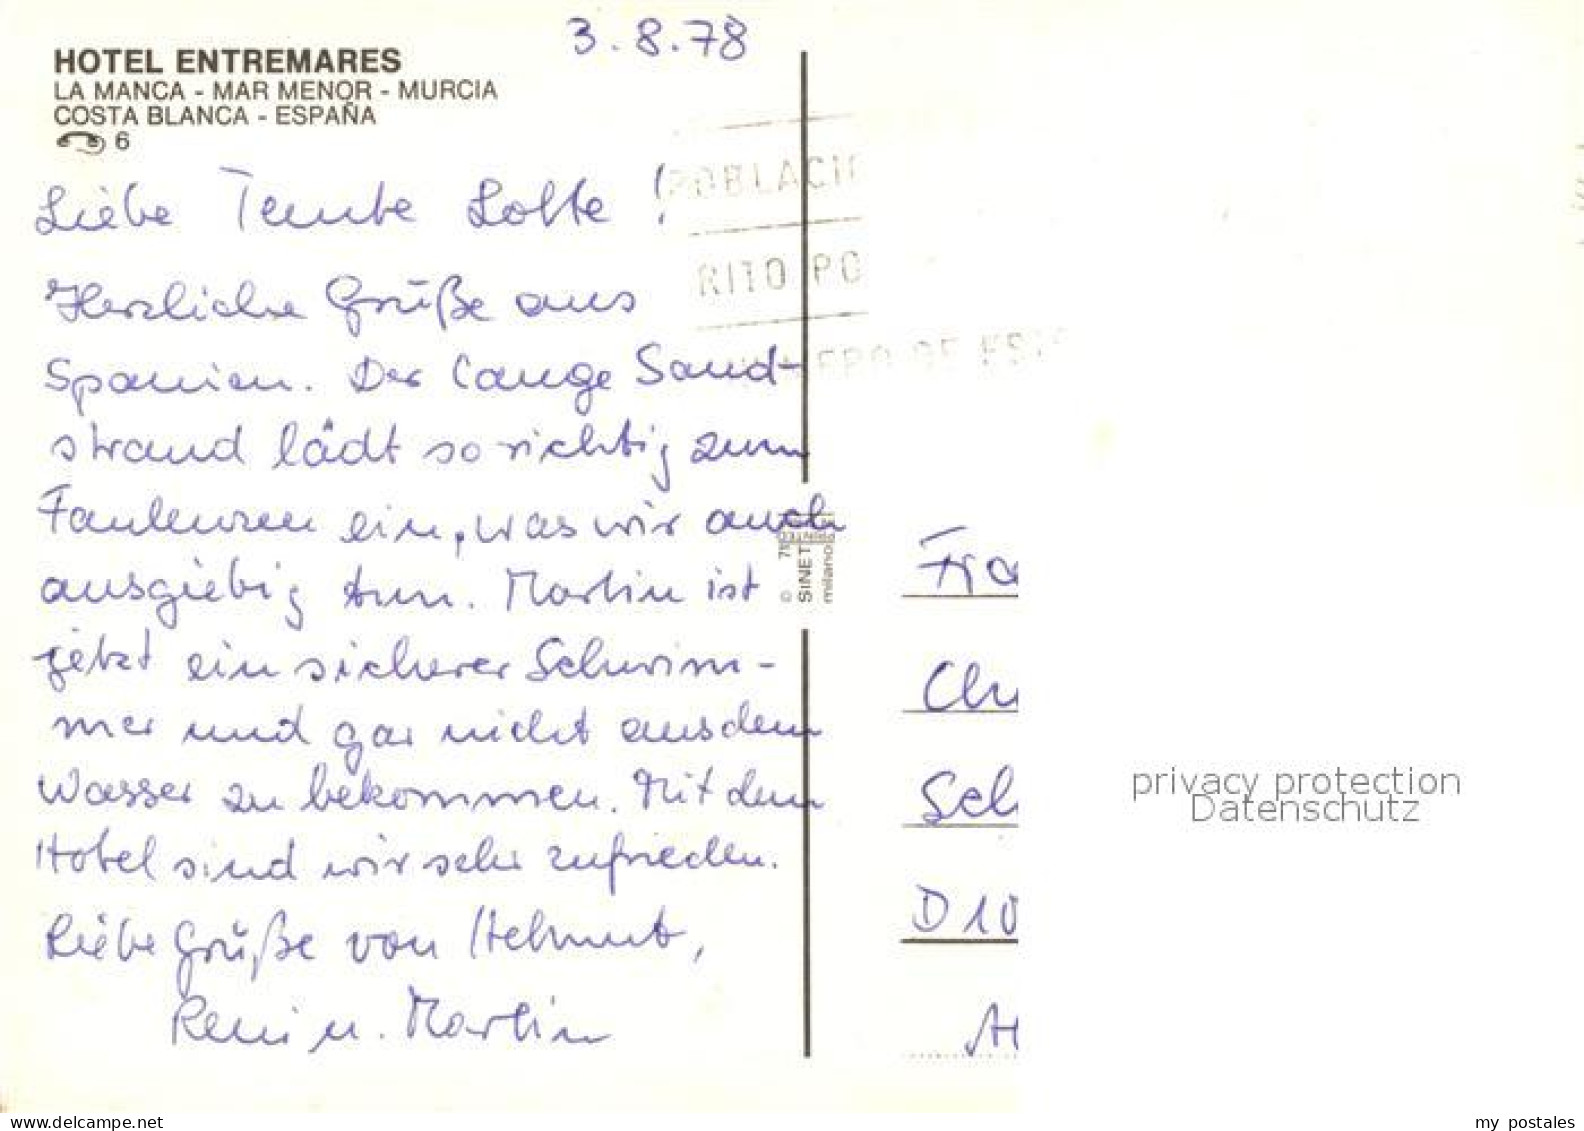 3.8.78
HOTEL ENTREMARES
LA MANCA - MAR MENOR - MURCIA
COSTA BLANCA - ESPAÑA
6
Liebe Tante Lotte!
Herzliche Grüße aus
Spanien. Der lange Sand-
strand lädt so richtig zum
Faulenzen ein, was wir auch
ausgiebig tun. Martin ist
jetzt ein sicherer Schwim-
mer und gar nicht aus dem
Wasser zu bekommen. Mit dem
Hotel sind wir sehr zufrieden.
Liebe Grüße von Helmut,
Reni u. Martin
POBLACI
RITO PO
© SINET
milano
Fra
Chr
Sch
D 10
privacy protection
Datenschutz
www.delcampe.net
my_postales